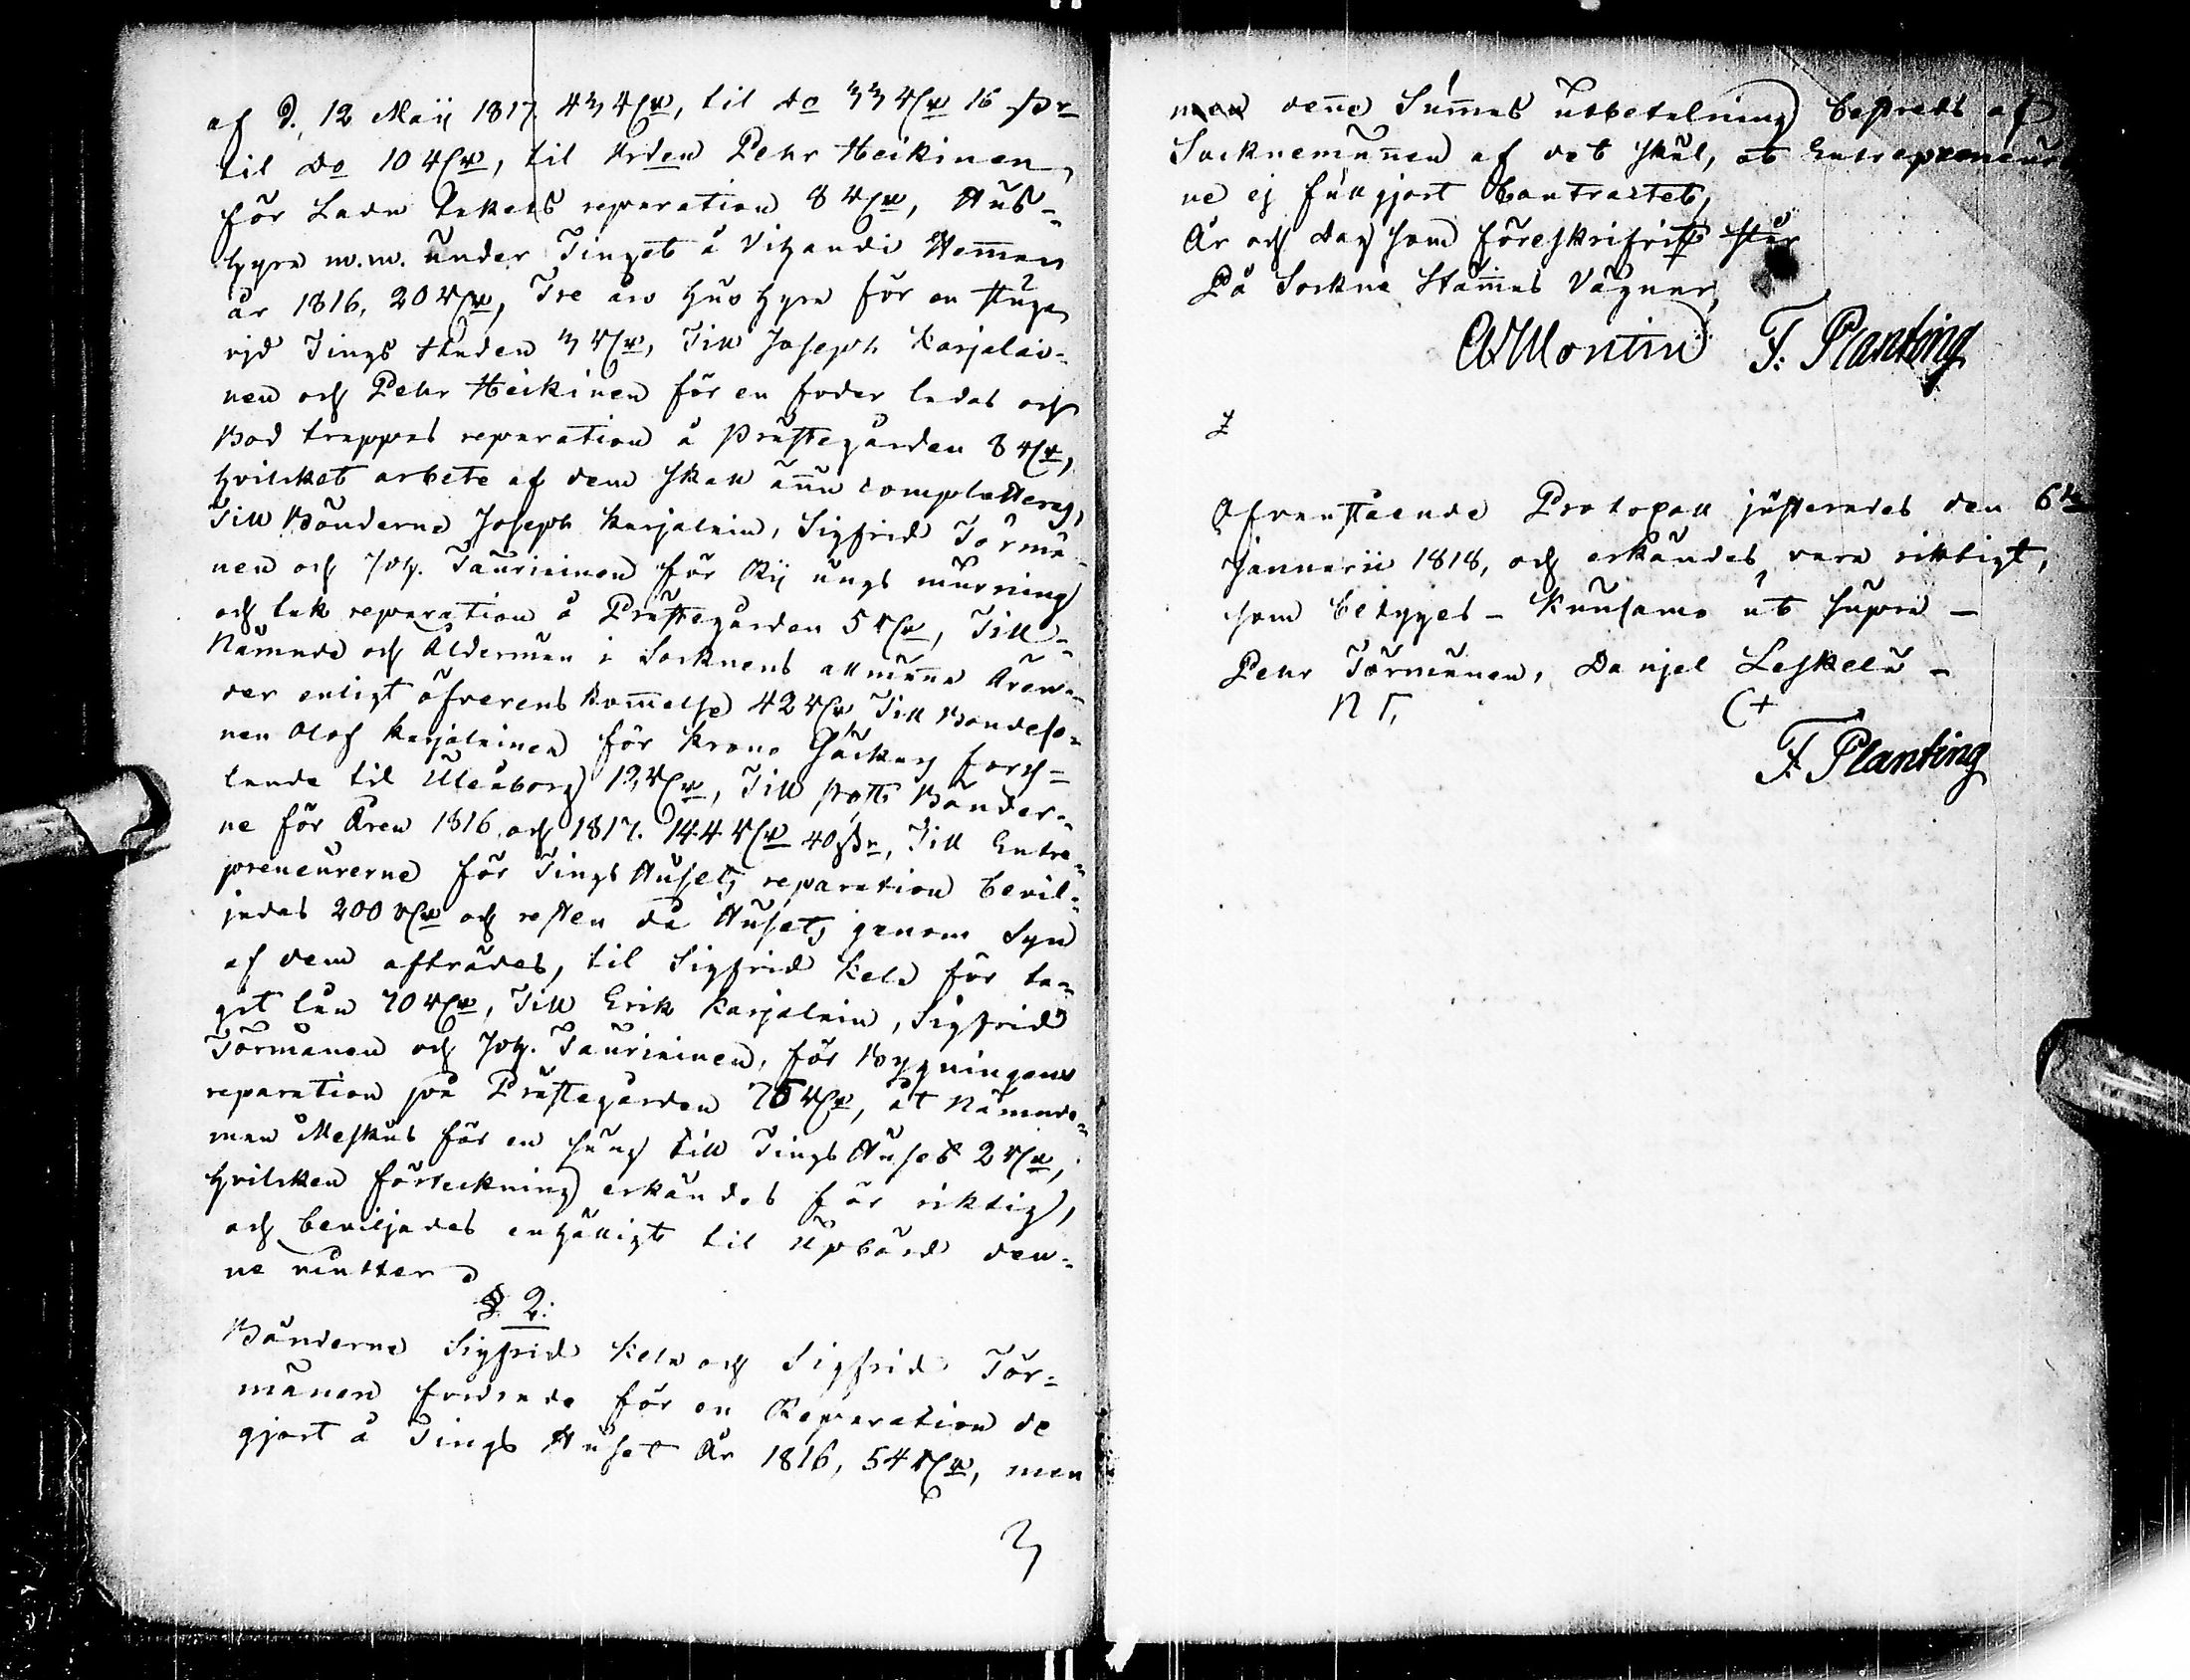 af d. 12 Maij 1817. 43 rdr, til do 33 rdr 16 skr
til do 10 rdr, til Arden Pehr Heikinen,
för Ladu takets reparation 8 rdr, Hus-
hyra m.m. under Tinget å Vitzandi Hemman
år 1816, 20 rdr, Tre års hushyra för en stuga
vjd Tings staden 3 rdr, Till Joseph Karjalai-
nen och Pehr Heikinen för en foder ladas och
Bod trappas reparation å Prästegården 8 rdr,
hvilcket arbete af dem skall ännu completteras,
Till Bönderne Joseph Karjalain, Sigfrid Törmä-
nen och Joh. Tauriainen för Rij ungs murning
och tak reparation å Prästegården 5 rdr, Till
Nämnde och Ålderman i Socknens allmänna Ären-
der enligt öfverenskommelse 42 rdr Till Bondeso-
nen Olof Karjalainen för Krono Jäckars fors-
lande til Uleåborg 12 rdr, Till Posts Bönder-
ne för Åren 1816 och 1817. 144 rdr 40 skr, Till Entre-
preneurerne för Tings Husets reparation bevil-
jades 200 rdr och resten då Husets genom Syn
af dem afträdes, til Sigfrid Kela för ta-
git lån 70 rdr, Till Erik Karjalain, Sigfrid
Törmänen och Joh. Tauriainen, för Bygningens
reparation på Prästegården 75 rdr, åt Nämnde-
man Meskus för en säng till Tings Huset 2 rdr,
hvilcken förteckning erkändes för riktig,
och beviljades enhälligt til Upbörd den-
ne vintter
§ 2:
Bönderne Sigfrid Kela och Sigfrid Tör-
mänen fordrade för en Reparation de
gjort å Tings Huset År 1816, 54 rdr, men
3
men denne Summas utbetalning bestreds af
Socknemännen af det skäl, at Entrepreneurer
ne ej fullgjort Contractet,
År och dag som föreskrifvit står
På Sockne Stämmas Vägnar,
A Montin F. Planting
Ofvanstående Protocoll justerades den 6te
Januarii 1818, och erkändes vara riktigt,
som betyges - Kuusamo ut supra -
Pehr Törmänen, Danjel Leskelä -
N T, C+
F. Planting